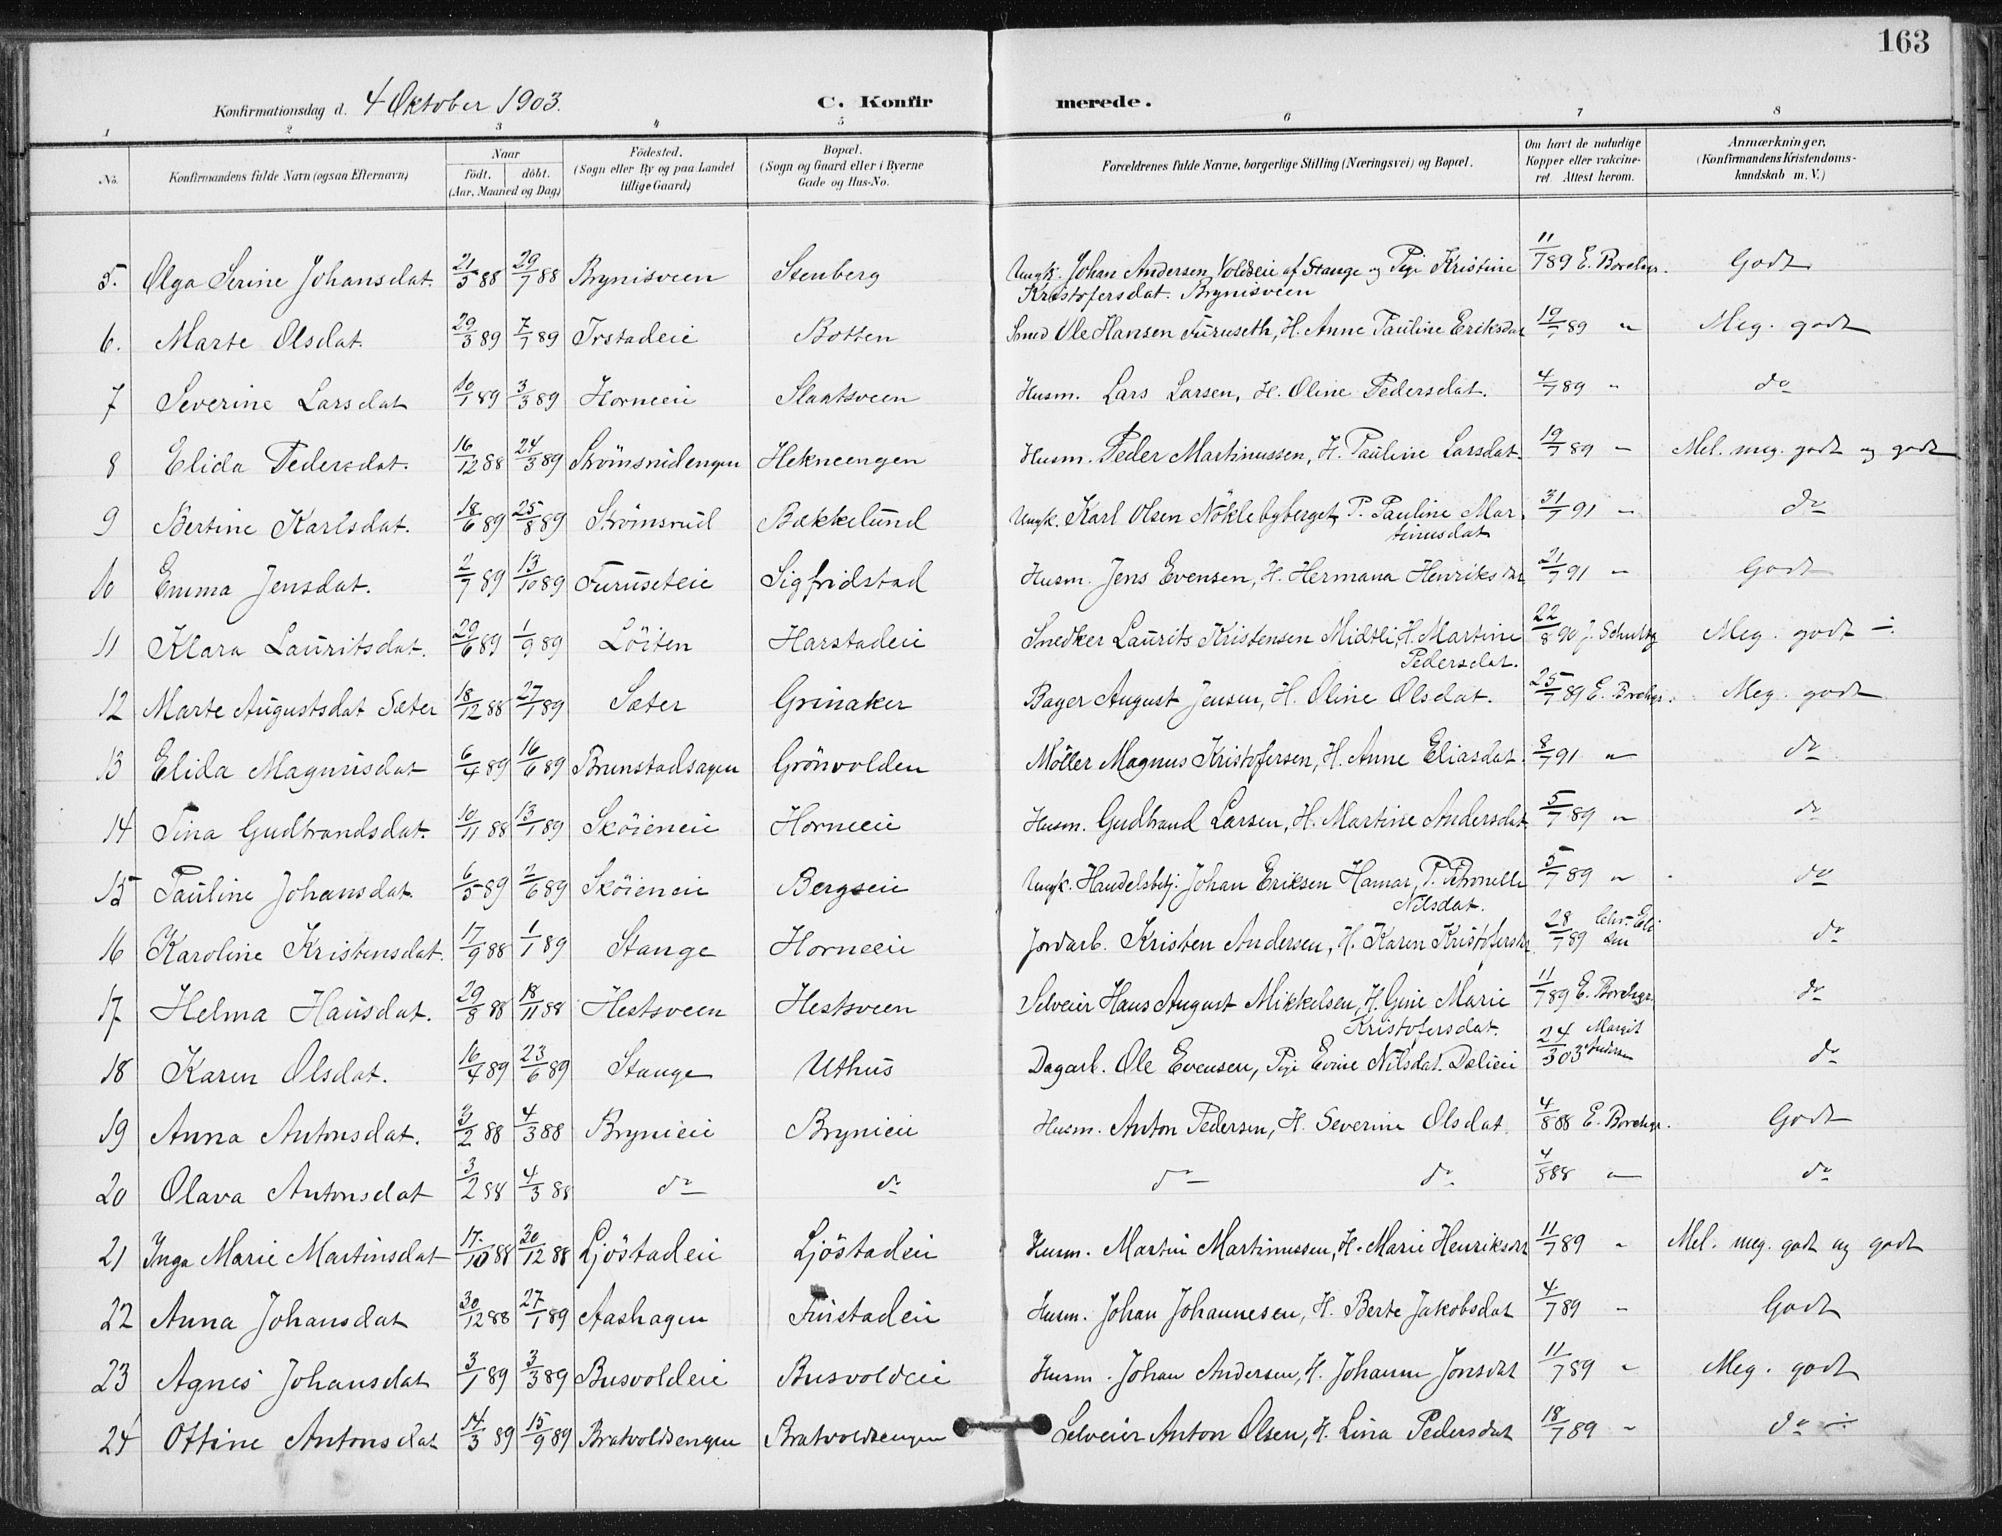 163
Konfirmationsdag d. 4 Oktober 1903. C. Konfir merede.
1 2 3 4 5 6 7 8
No. Konfirmandens fulde Navn (ogsaa Efternavn) Naar födt. döbt. (Aar, Maaned og Dag) Födested. (Sogn eller By og paa Landet tillige Gaard) Bopæl. (Sogn og Gaard eller i Byerne Gade og Hus-No. Forældrenes fulde Navne, borgerlige Stilling (Næringsvei) og Bopæl. Om havt de naturlige Kopper eller vakcineret. Attest herom. Anmærkninger. (Konfirmandens Kristendomskundskab m. V.)
5. Olga Serine Johansdat. 21/5 88 29/7 88 Brynisveen Stenberg Ungk. Johan Andersen Voldeie af Stange og Pige Kristine 11/7 89 E. Borchgr. Godt
Kristofersdat. Brynisveen
6. Marte Olsdat. 29/3 89 7/7 89 Irstadeie Botten Smed Ole Hansen Furuseth, H. Anne Pauline Eriksdat 19/7 89 " Meg. godt
7 Severine Larsdat 10/1 89 3/3 89 Horneeie Slaatsveen Husm. Lars Larsen, H. Oline Pedersdat. 4/7 89 " do
8 Elida Pedersdat. 16/12 88 24/3 89 Strömsrudengen Hekneengen Husm. Peder Martinussen, H. Pauline Larsdat. 19/7 89 " Mel. meg. godt og godt
9 Bertine Karlsdat. 18/6 89 25/8 89 Strömsrud Bækkelund Ungk. Karl Olsen Nöklebyberget, P. Pauline Mar 31/7 91 " do
tinusdat
10 Emma Jensdat. 2/7 89 13/10 89 Furuseteie Sigfridstad Husm. Jens Evensen, H. Hermana Henriksdat 21/7 91 " Godt
11 Klara Lauritsdat. 29/6 89 1/9 89 Löiten Harstadeie Snedker Laurits Kristensen Midtli, H. Martine 22/8 90 J. Schultz Meg. godt ÷
Pedersdat.
12 Marte Augustsdat Sæter 18/12 88 27/1 89 Sæter Grinaker Bager August Jensen, H. Oline Olsdat. 25/7 89 E. Borchgr. Meg. godt
13 Elida Magnusdat 6/4 89 16/6 89 Brunstadsagen Grönvolden Möller Magnus Kristofersen, H. Anne Eliasdat. 8/7 91 " do
14 Tina Gudbrandsdat. 10/11 88 13/1 89 Sköieneie Horneeie Husm. Gudbrand Larsen, H. Martine Andersdat 5/7 89 " do
15 Pauline Johansdat. 6/5 89 2/6 89 Sköieneie Bergseie Ungk. Handelsbetj. Johan Eriksen Hamar, P. Petronelle 5/7 89 " do
Nilsdat.
16 Karoline Kristensdat. 17/9 88 1/1 89 Stange Horneeie Jordarb. Kristen Andersen, H. Karen Kristofersdat 28/7 89 do
17 Helma Hansdat. 29/8 88 18/11 88 Hestsveen Hestsveen Selveier Hans August Mikkelsen, H. Gine Marie 11/7 89 E. Borchgr. do
Kristofersdat.
18 Karen Olsdat. 16/4 89 23/6 89 Stange Uthus Dagarb. Ole Evensen, Pige Evine Nilsdat. Dælieie 24/3 03 Margit Andersen do
19 Anna Antonsdat. 3/2 88 4/3 88 Brynieie Brynieie Husm. Anton Pedersen, H. Severine Olsdat. 4/8 88 E. Borchgr. Godt
20 Olava Antonsdat 3/2 88 4/3 88 do do do do 4/8 88 " do
21 Inga Marie Martinsdat 17/10 88 30/12 88 Ljöstadeie Ljöstadeie Husm. Martin Martinussen, H. Marie Henriksdat 11/7 89 " Mel. meg. godt og godt
22 Anna Johansdat 30/12 88 27/1 89 Aashagen Finstadeie Husm. Johan Johannesen, H. Berte Jakobsdat 4/7 89 " Godt
23 Agnes Johansdat 3/1 89 3/3 89 Busvoldeie Busvoldeie Husm. Johan Andersen, H. Johanne Jonsdat 11/7 89 " Meg. godt
24 Ottine Antonsdat 14/3 89 15/9 89 Bratvoldsengen Bratvoldsengen Selveier Anton Olsen, H. Lina Pedersdat 18/7 89 " do ÷